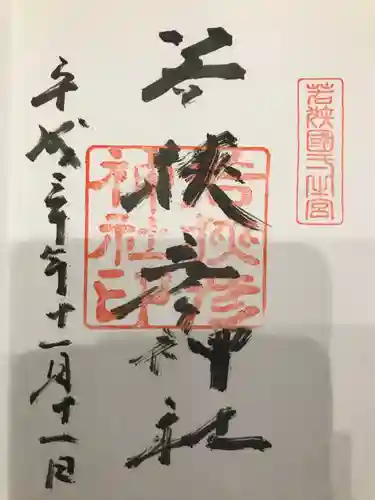 若狭國一之宮
若狭彦神社
若狭彦神社印
平成三十年十一月十一日